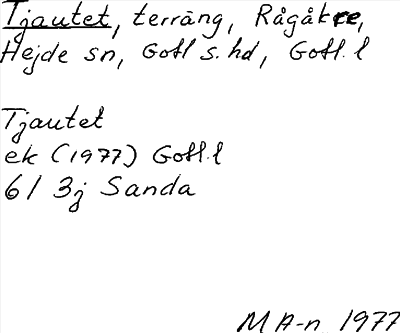 Tjautet, terräng, Rågåkre,
Hejde sn, Gotl s. hd, Gotl. l
Tjautet
ek (1977) Gotl. l
6I 3j Sanda
M A-n 1977